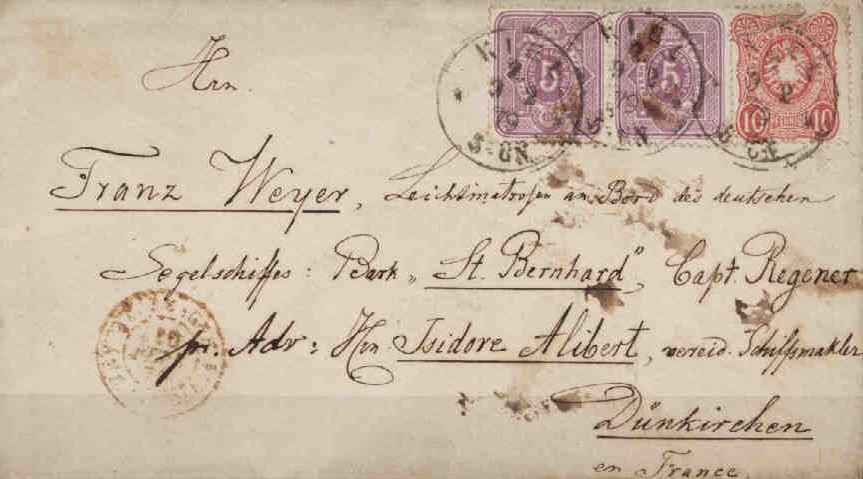 KIEL
79
5-6N.
5
KIEL
79
5
10 10
Hrn.
Franz Weyer, Leichtmatrosen an Bord des deutschen
Segelschiffes: Bark „St. Bernhard", Capt. Regener
pr. Adr: Hrn Isidore Alibert, vereid. Schiffsmakler
Dünkirchen
en France.